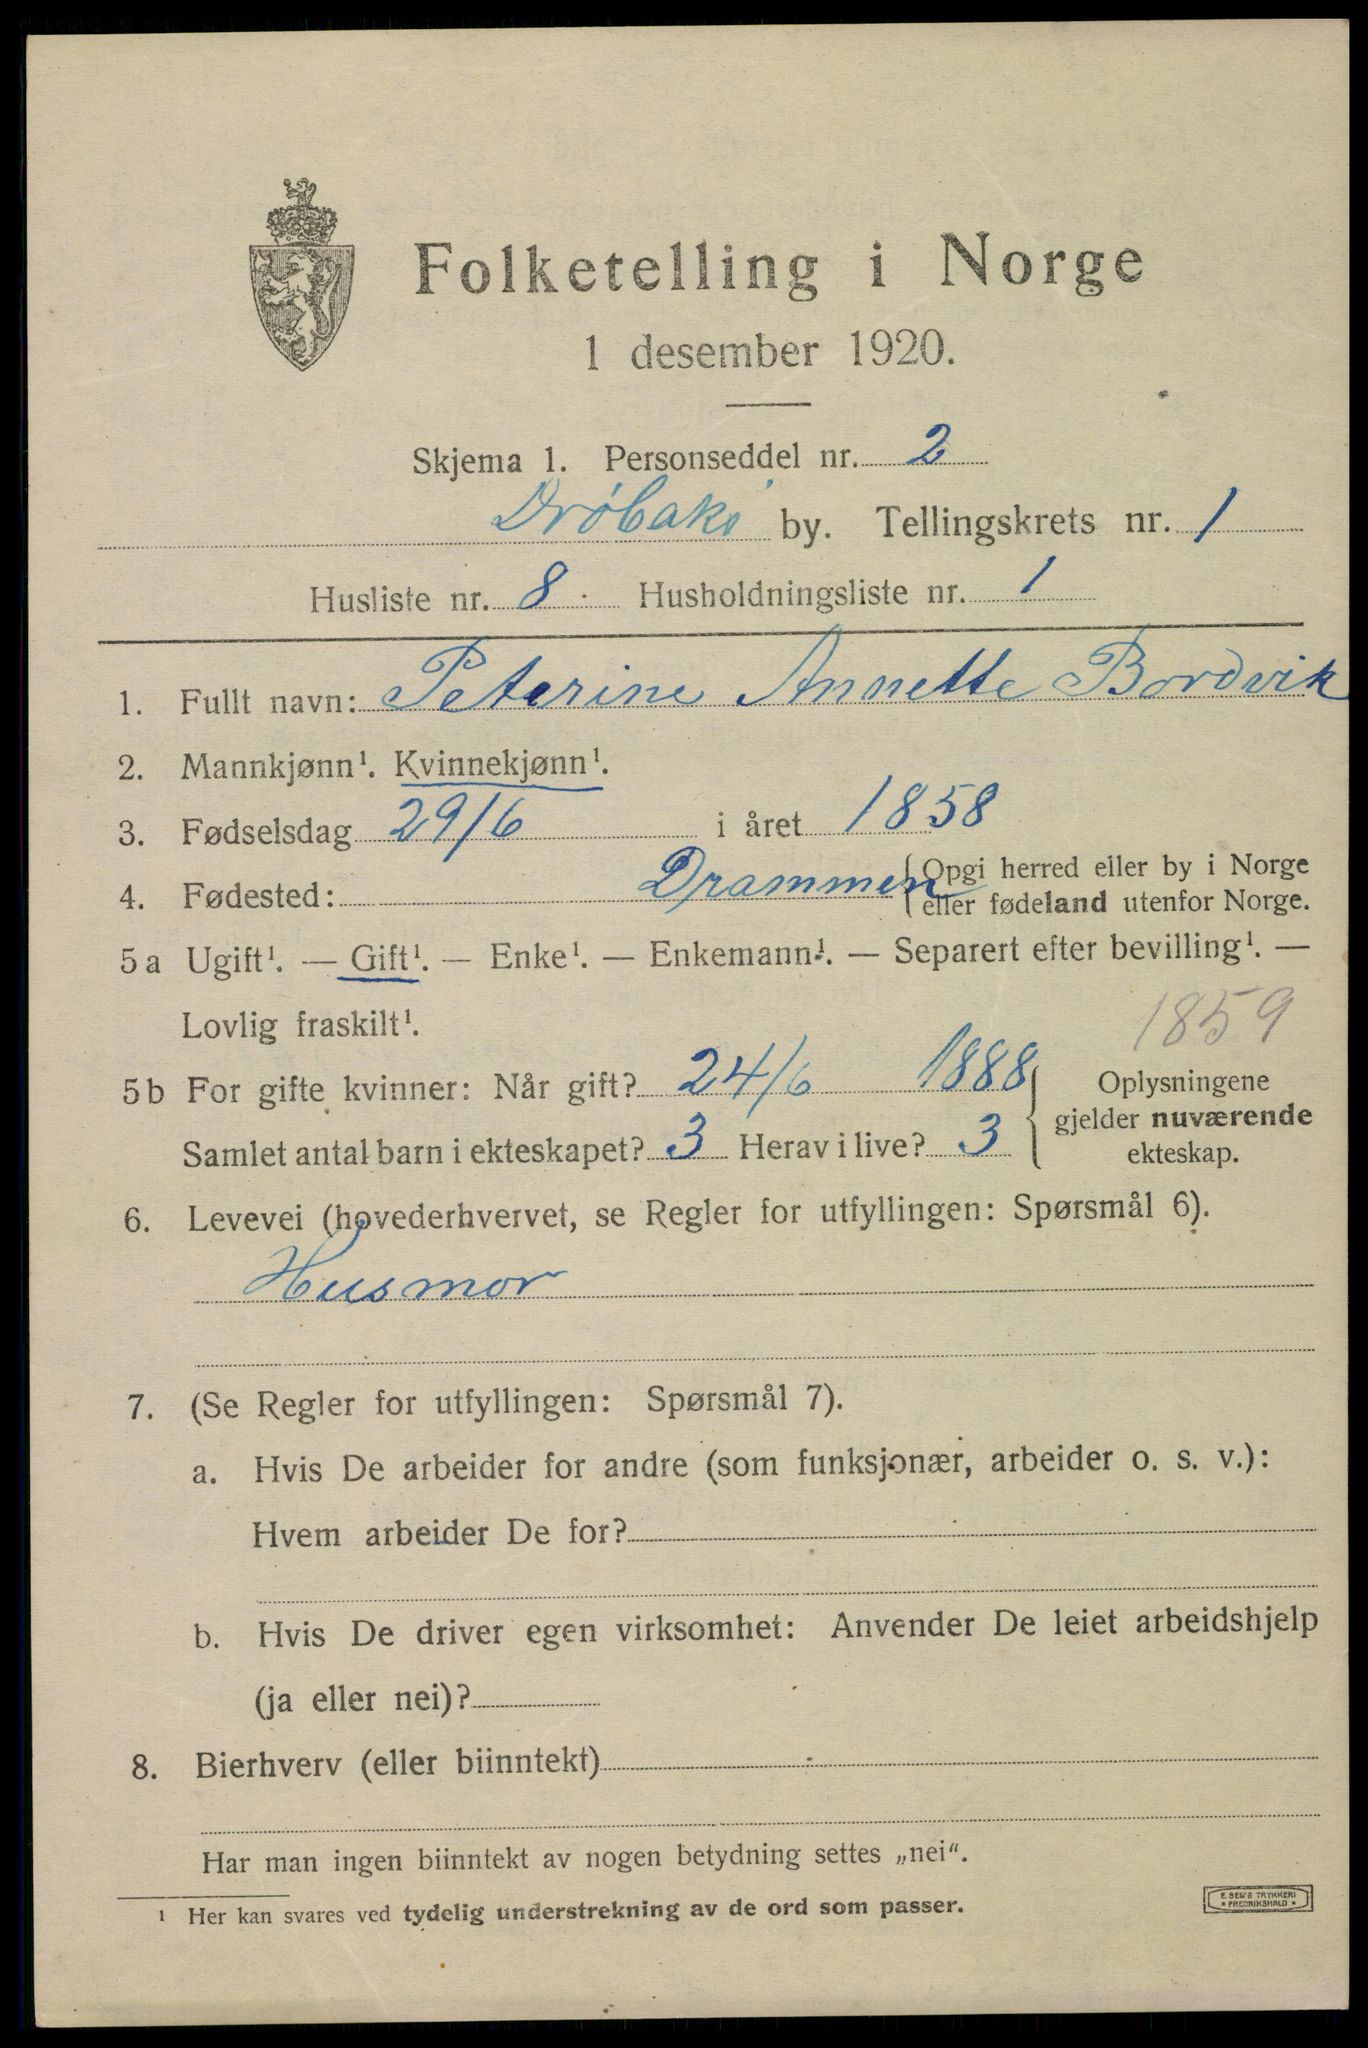 Folketelling i Norge
1 desember 1920.
Skjema 1. Personseddel nr. 2
Dröbak by. Tellingskrets nr. 1
Husliste nr. 8 Husholdningsliste nr. 1
1. Fullt navn: Peterine Annette Bordvik
2. Mannkjønn¹. Kvinnekjønn¹.
3. Fødselsdag 29/6 i året 1858
4. Fødested: Drammen {Opgi herred eller by i Norge
eller fødeland utenfor Norge.
5a Ugift¹. — Gift¹. — Enke¹. — Enkemann¹. — Separert efter bevilling¹. —
Lovlig fraskilt¹.
1859
5b For gifte kvinner: Når gift? 24/6 1888 { Oplysningene
gjelder nuværende
Samlet antal barn i ekteskapet? 3 Herav i live? 3
ekteskap.
6. Levevei (hovederhvervet, se Regler for utfyllingen: Spørsmål 6).
Husmor
7. (Se Regler for utfyllingen: Spørsmål 7).
a. Hvis De arbeider for andre (som funksjonær, arbeider o. s. v.):
Hvem arbeider De for?
b. Hvis De driver egen virksomhet: Anvender De leiet arbeidshjelp
(ja eller nei)?
8. Bierhverv (eller biinntekt)
Har man ingen biinntekt av nogen betydning settes „nei“.
¹ Her kan svares ved tydelig understrekning av de ord som passer.
E. SEM'S TRYKKERI
• FREDRIKSHALD •